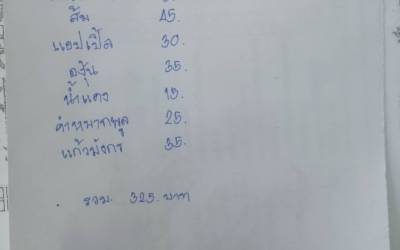 ส้ม 45.
แอปเปิ้ล 30.
องุ่น 35.
น้ำแดง 15.
ค่าหมากพลู 25.
แก้วมังกร 35.
รวม 325. บาท